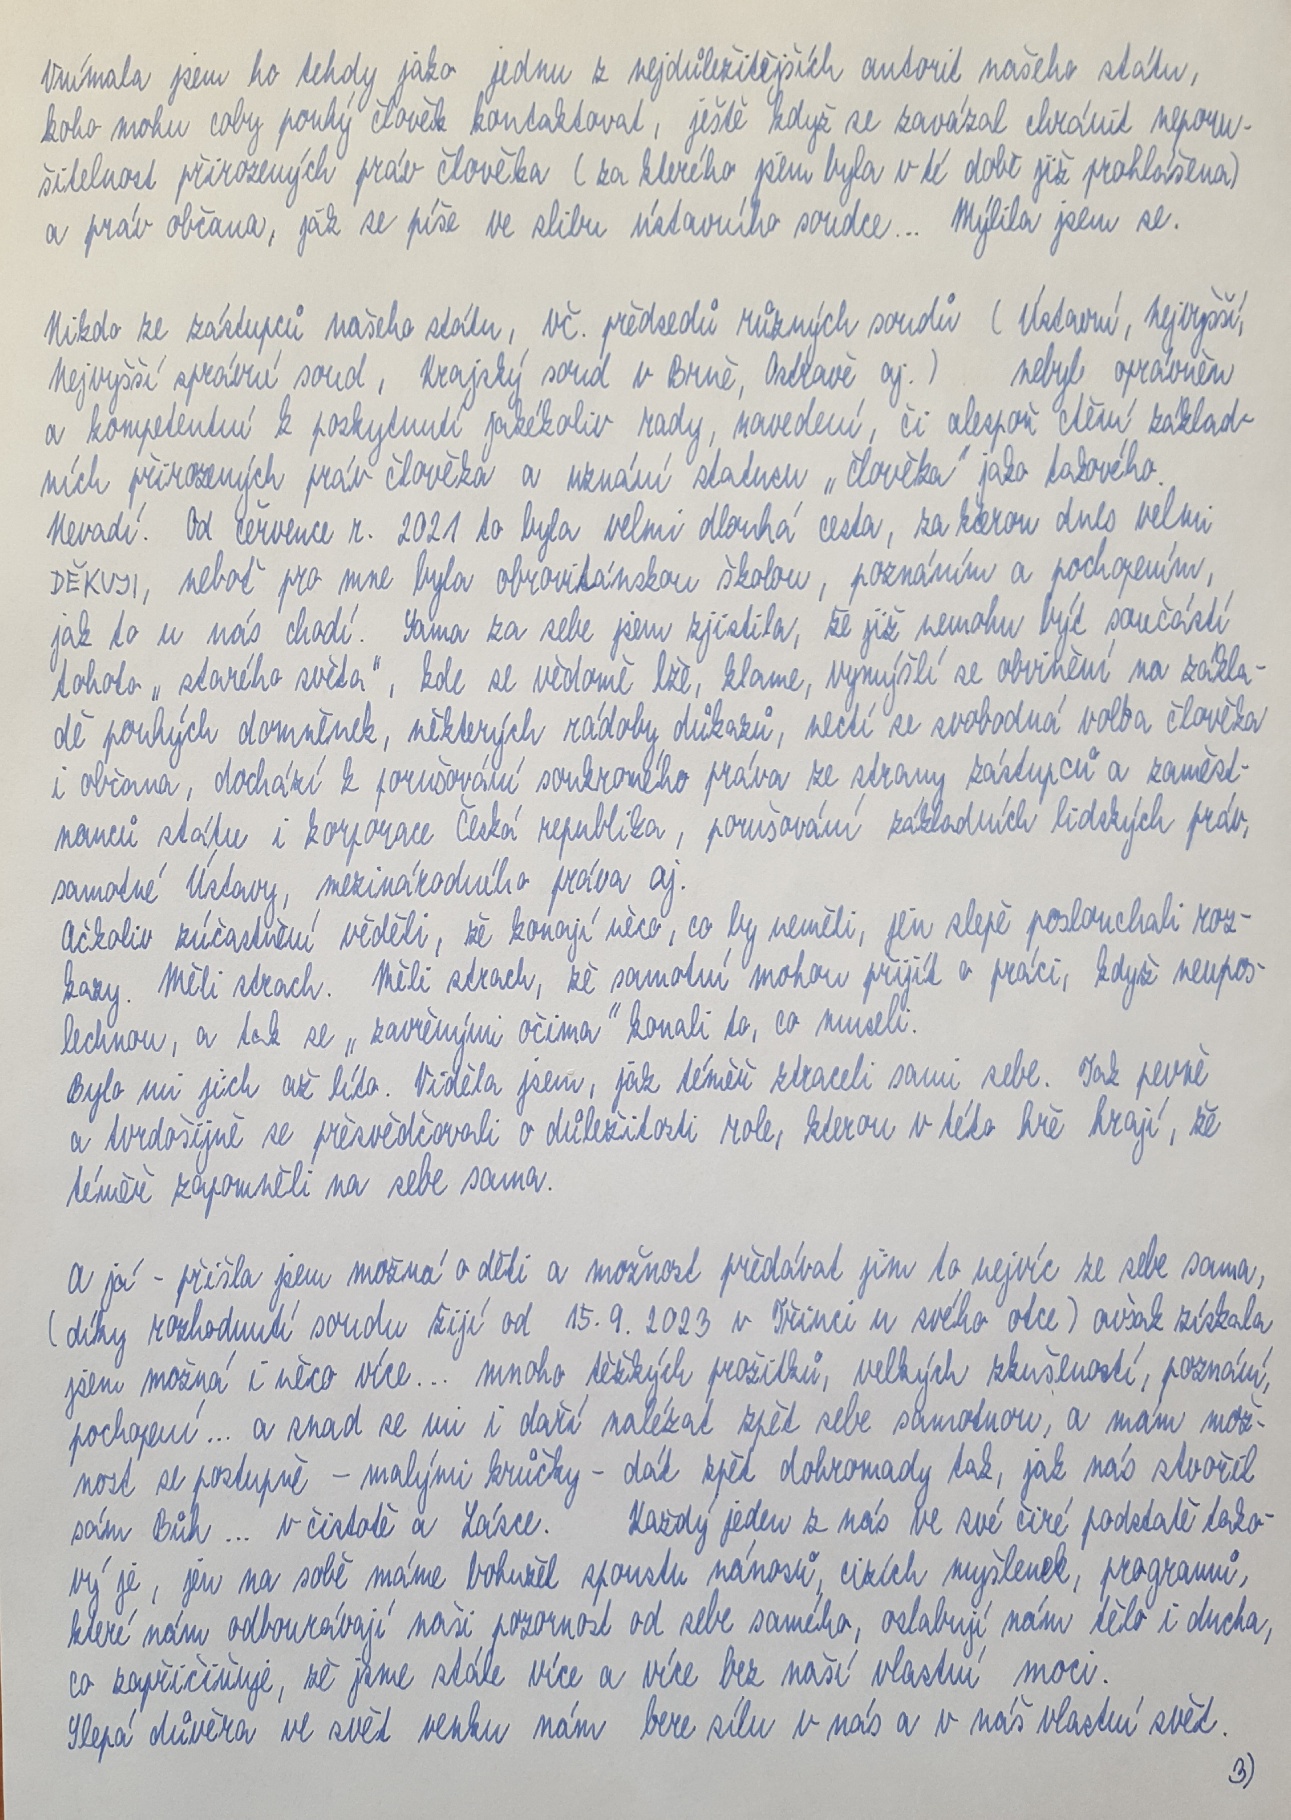 Vnímala jsem ho tehdy jako jednu z nejdůležitějších autorit našeho státu,
koho mohu coby pouhý člověk kontaktovat, ještě když se zavázal chránit neporu-
šitelnost přirozených práv člověka (za kterého jsem byla v té době již prohlášena)
a práv občana, jak se píše ve slibu ústavního soudce... Mýlila jsem se.

Nikdo ze zástupců našeho státu, vč. předsedů různých soudů (Ústavní, Nejvyšší,
Nejvyšší správní soud, Krajský soud v Brně, Ostravě aj.) nebyl oprávněn
a kompetentní k poskytnutí jakékoliv rady, navedení, či alespoň ctění základ-
ních přirozených práv člověka a uznání statusu „člověka“ jako takového.
Nevadí. Od července r. 2021 to byla velmi dlouhá cesta, za kterou dnes velmi
DĚKUJI, neboť pro mne byla obrovitánskou školou, poznáním a pochopením,
jak to u nás chodí. Sama za sebe jsem zjistila, že již nemohu být součástí
tohoto „starého světa“, kde se vědomě lže, klame, vymýšlí se obvinění na zákla-
dě pouhých domněnek, některých rádoby důkazů, nectí se svobodná volba člověka
i občana, dochází k porušování soukromého práva ze strany zástupců a zaměst-
nanců státu i korporace Česká republika, porušování základních lidských práv,
samotné Ústavy, mezinárodního práva aj.
Ačkoliv zúčastnění věděli, že konají něco, co by neměli, jen slepě poslouchali roz-
kazy. Měli strach. Měli strach, že samotní mohou přijít o práci, když neupos-
lechnou, a tak se „zavřenými očima“ konali to, co museli.
Bylo mi jich až líto. Viděla jsem, jak téměř ztraceli sami sebe. Tak pevně
a tvrdošíjně se přesvědčovali o důležitosti role, kterou v této hře hrají, že
téměř zapomněli na sebe sama.

A já - přišla jsem možná o děti a možnost předávat jim to nejvíc ze sebe sama,
(díky rozhodnutí soudu žijí od 15.9.2023 v Třinci u svého otce) avšak získala
jsem možná i něco více... mnoho těžkých prožitků, velkých zkušeností, poznání,
pochopení... a snad se mi i daří nalézat zpět sebe samotnou, a mám mož-
nost se postupně - malými krůčky - dát zpět dohromady tak, jak nás stvořil
sám Bůh ... v čistotě a Lásce. Každý jeden z nás ve své čiré podstatě tako-
vý je, jen na sobě máme bohužel spoustu nánosů, cizích myšlenek, programů,
které nám odbourávají naši pozornost od sebe samého, oslabují nám tělo i ducha,
co zapříčiňuje, že jsme stále více a více bez naší vlastní moci.
Slepá důvěra ve svět venku nám bere sílu v nás a v náš vlastní svět.
3)